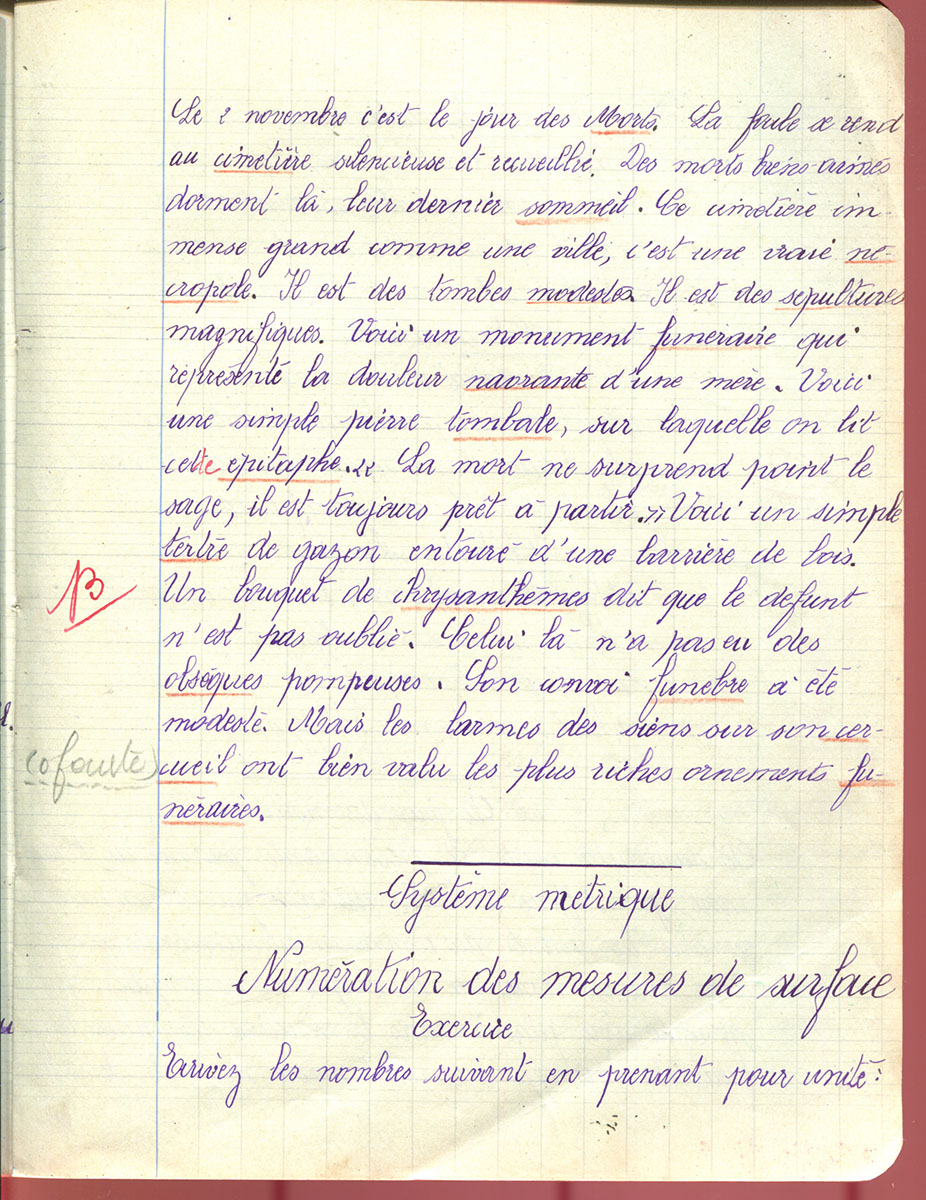 Le 2 novembre c'est le jour des Morts. La foule se rend
au cimetière silencieuse et recueillie. Des morts biens-aimés
dorment là, leur dernier sommeil. Ce cimetière im-
mense grand comme une ville, c'est une vraie né-
cropole. Il est des tombes modestes. Il est des sépultures
magnifiques. Voici un monument funéraire qui
représente la douleur navrante d'une mère. Voici
une simple pierre tombale, sur laquelle on lit
cette épitaphe. « La mort ne surprend point le
sage, il est toujours prêt à partir. » Voici un simple
tertre de gazon entouré d'une barrière de bois.
Un bouquet de chrysanthèmes dit que le défunt
n'est pas oublié. Celui là n'a pas eu des
obsèques pompeuses. Son convoi funèbre a été
modeste. Mais les larmes des siens sur son cer-
(0 faute)
cueil ont bien valu les plus riches ornements fu-
néraires.
B
Système métrique
Numération des mesures de surface
Exercice
Ecrivez les nombres suivant en prenant pour unité :